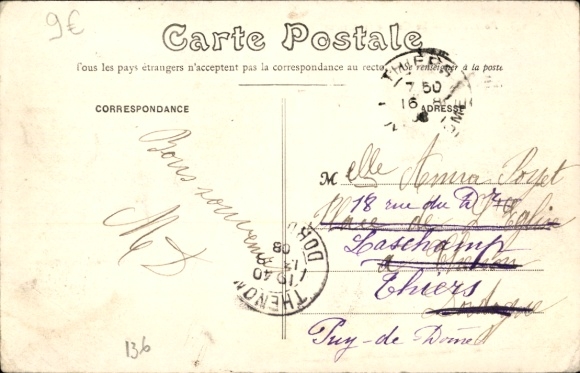 9€
Carte Postale
Tous les pays étrangers n'acceptent pas la correspondance au recto. Se renseigner à la poste
THIERS
7 50
16 8
08
CORRESPONDANCE
ADRESSE
Bons souvenirs
MD
Melle Anna
18 rue du Dr
Place de l'Eglise
Laschamp
à Thenon
Thiers
Dordogne
Puy-de-Dôme
THENON
DOR
19 40
08
136